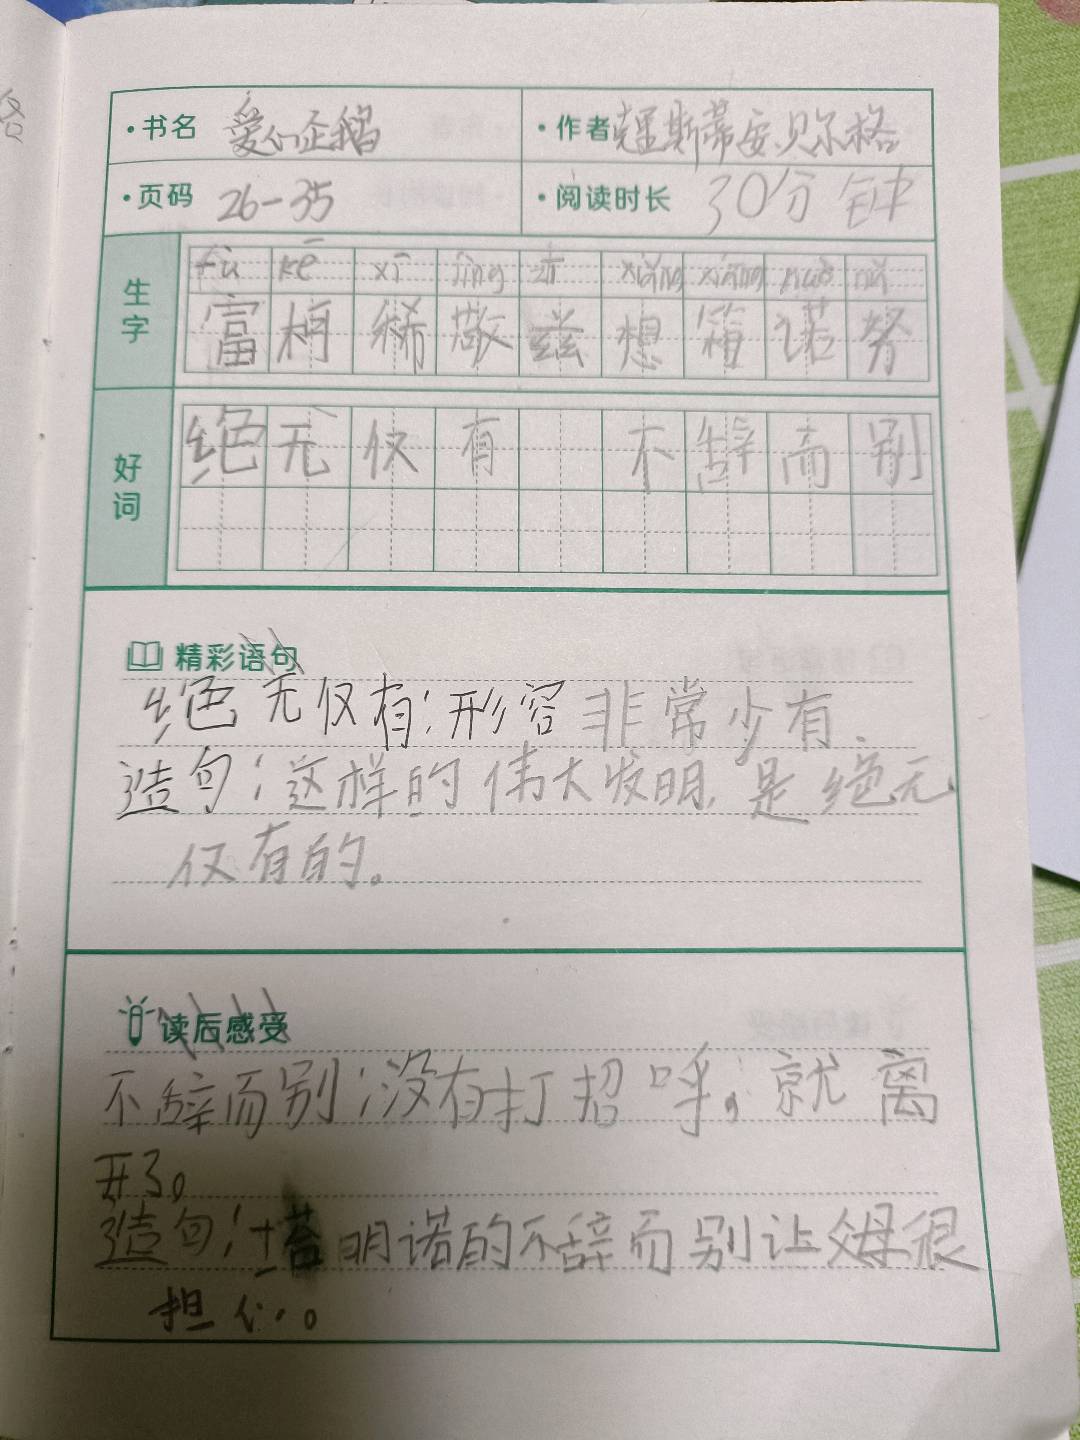 ·书名 爱心企鹅
·作者 克里斯蒂安·贝尔格
·页码 26-35
·阅读时长 30分钟
生字
fù kē xī jìng zī xiǎng xiāng nuò nǔ
富 柯 稀 敬 兹 想 箱 诺 努
好词
绝无仅有 不辞而别
精彩语句
绝无仅有:形容非常少有.
造句:这样的伟大发明,是绝无
仅有的。
读后感受
不辞而别:没有打招呼,就离
开了。
造句:塔明诺的不辞而别让父母很
担心。